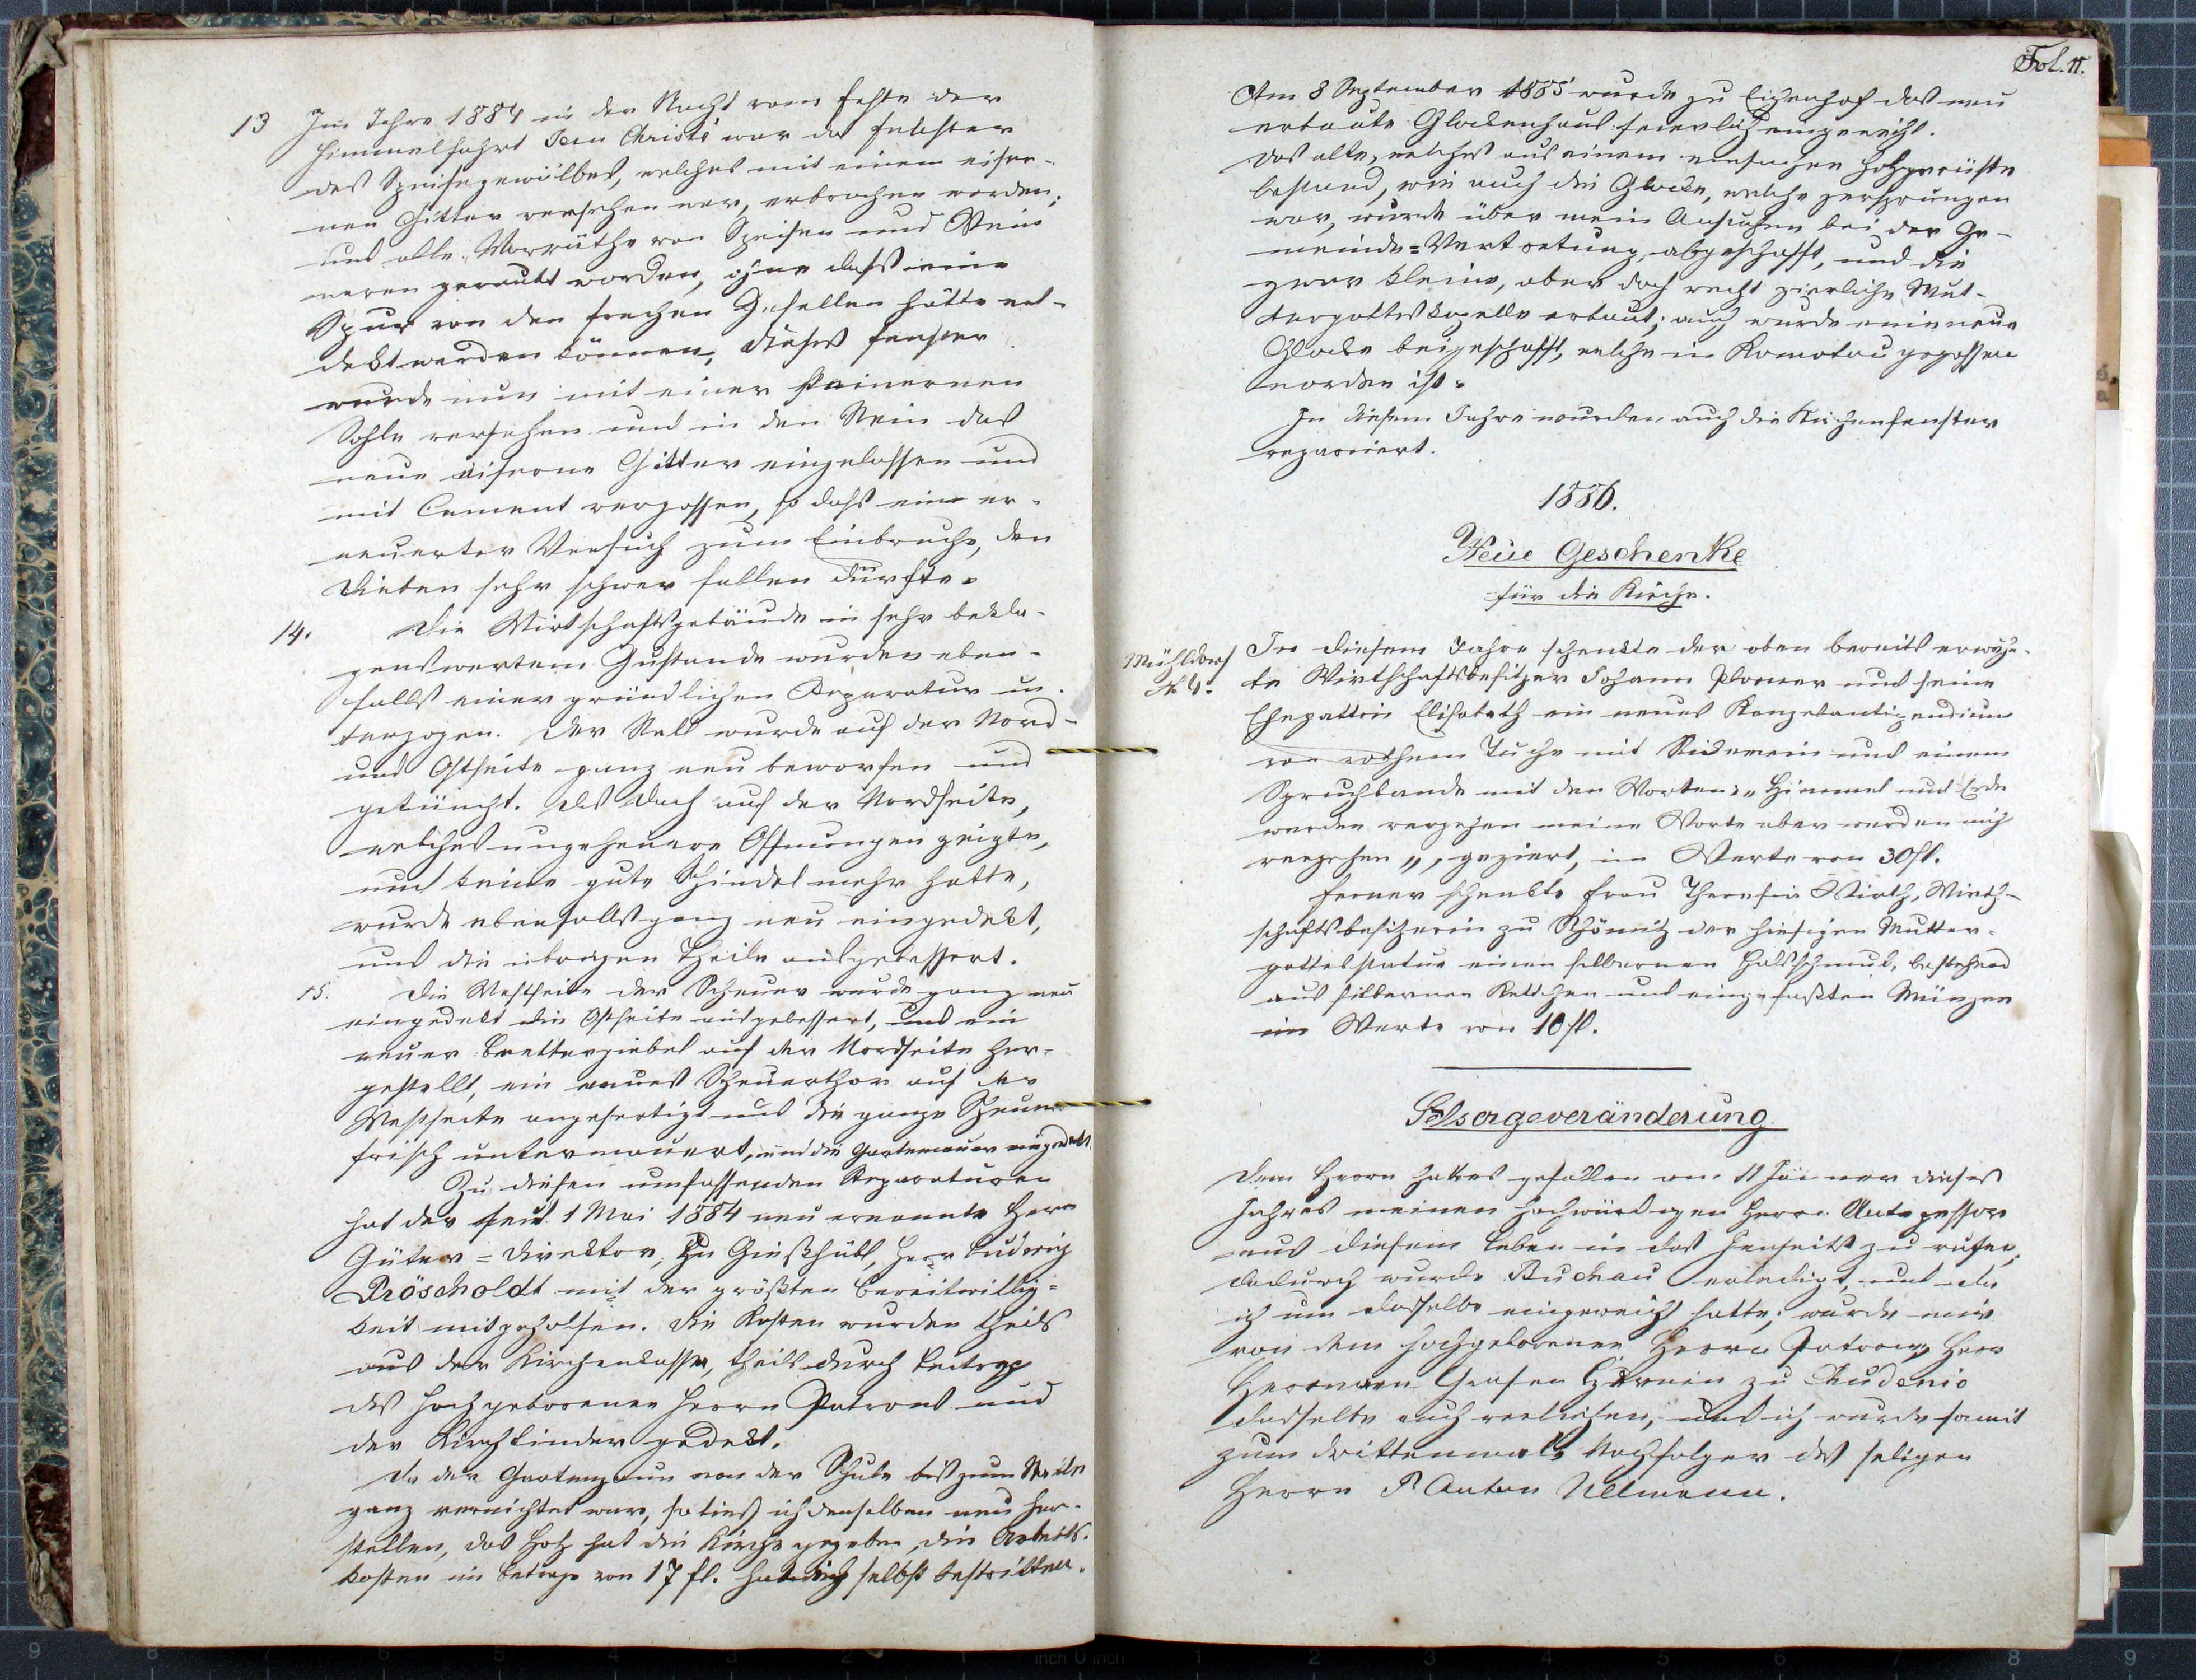 13 Im Jahre 1884 in der Nacht vom Feste der
Himmelfahrt Jesu Christi war das Fenster
des Speisegewölbes, welches mit einem eiser-
nen Gitter versehen war, erbrochen worden,
und alle Vorräthe von Speisen und Wein
waren geraubt worden, ohne dass eine
Spur von den frechen Gesellen hätte ent-
dekt werden können, dieses Fenster
wurde nun mit einer steinernen
Sohle versehen und in den Stein das
neue eiserne Gitter eingelassen und
mit Cement vergossen, so dass ein er-
neuerter Versuch zum Einbruche, den
Dieben sehr schwer fallen dürfte.
14. Die Wirtschaftsgebäude in sehr bekla-
genswertem Zustande wurden eben-
falls einer gründlichen Reparatur un-
terzogen. Der Stall wurde auf der Nord-
und Ostseite ganz neu beworfen und
getüncht. Das Dach auf der Nordseite,
welches ungeheuere Öffnungen zeigte,
und keine gute Schindel mehr hatte,
wurde ebenfalls ganz neu eingedekt,
und die übrigen Theile ausgebessert.
15. Die Westseite der Scheuer wurde ganz neu
eingedekt die Ostseite ausgebessert, und ein
neuer Brettergiebel auf der Nordseite her-
gestellt, ein neues Scheuerthor auf der
Westseite angefertigt und die ganze Scheuer
frisch untermauert, und die Gartenmauer eingedekt.
Zu diesen umfassenden Reparaturen
hat der seit 1 Mai 1884 neu ernannte Herr
Güter=Direktor, zu Gießhübl, Herr Ludwig
Pröscholdt mit der größten Bereitwillig-
keit mitgeholfen. Die Kosten wurden theils
aus der Kirchenkasse, theils durch Beiträge
des hochgeborenen Herrn Patrons und
der Kirchkinder gedekt.
Da der Gartenzaun von der Schule bis zum Stalle
ganz vernichtet war, so ließ ich denselben neu her-
stellen, das Holz hat die Kirche gegeben, die Arbeits-
kosten im Betrage von 17 fl. habe ich selbst bestritten.
Fol. 11.
Am 8 September 1885 wurde zu Eichenhof das neu
erbaute Glockenhaus feierlich eingeweiht.
Das alte, welches aus einem einfachen Holzgerüste
bestand, wie auch die Glocke, welche zersprungen
war, wurde über mein Ansuchen bei der Ge-
meinde=Vertretung, abgeschafft, und die
zwar kleine, aber doch recht zierliche Mut-
tergotteskapelle erbaut; auch wurde eine neue
Glocke beigeschafft, welche in Komotau gegossen
worden ist.
In diesem Jahre wurden auch die Kirchenfenster
repariert.
1886.
Neue Geschenke
für die Kirche.
Mühldorf
№ 4.
In diesem Jahre schenkte der oben bereits erwähn-
te Wirthschaftsbesitzer Johann Ploner und seine
Ehegattin Elisabeth ein neues Kanzelantipendium
von rothem Tuche mit Stickerei und einem
Spruchbande mit den Worten: „Himmel und Erde
werden vergehen meine Worte aber werden nicht
vergehen„, geziert, im Werte von 30 fl.
Ferner schenkte Frau Theresia Wirth, Wirth-
schaftsbesitzerin zu Schömitz der hiesigen Mutter-
gottesstatue einen silbernen Halsschmuck, bestehend
aus silbernen Kettchen und eingefaßten Münzen
im Werte von 10 fl.
Selsorgeveränderung
Dem Herrn hat es gefallen am 11 Jänner dieses
Jahres meinen hochwürdigen Herrn Antezessor
aus diesem Leben in das Jenseits zu rufen,
dadurch wurde Buchau erledigt, und da
ich um dasselbe eingereicht hatte, wurde mir
von dem hochgeborenen Herrn Patron, Herr
Herrmann Grafen Czernin zu Chudenic
dasselbe auch verliehen, und ich wurde somit
zum drittenmale Nachfolger des seligen
Herrn P. Anton Ullmann.